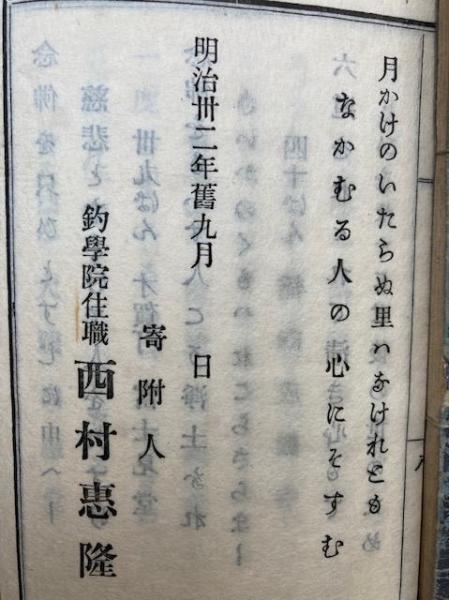 月かけのいたらぬ里ハなけれとも
なかむる人の心にそすむ
明治卅二年舊九月　日
寄附人
釣學院住職 西村惠隆